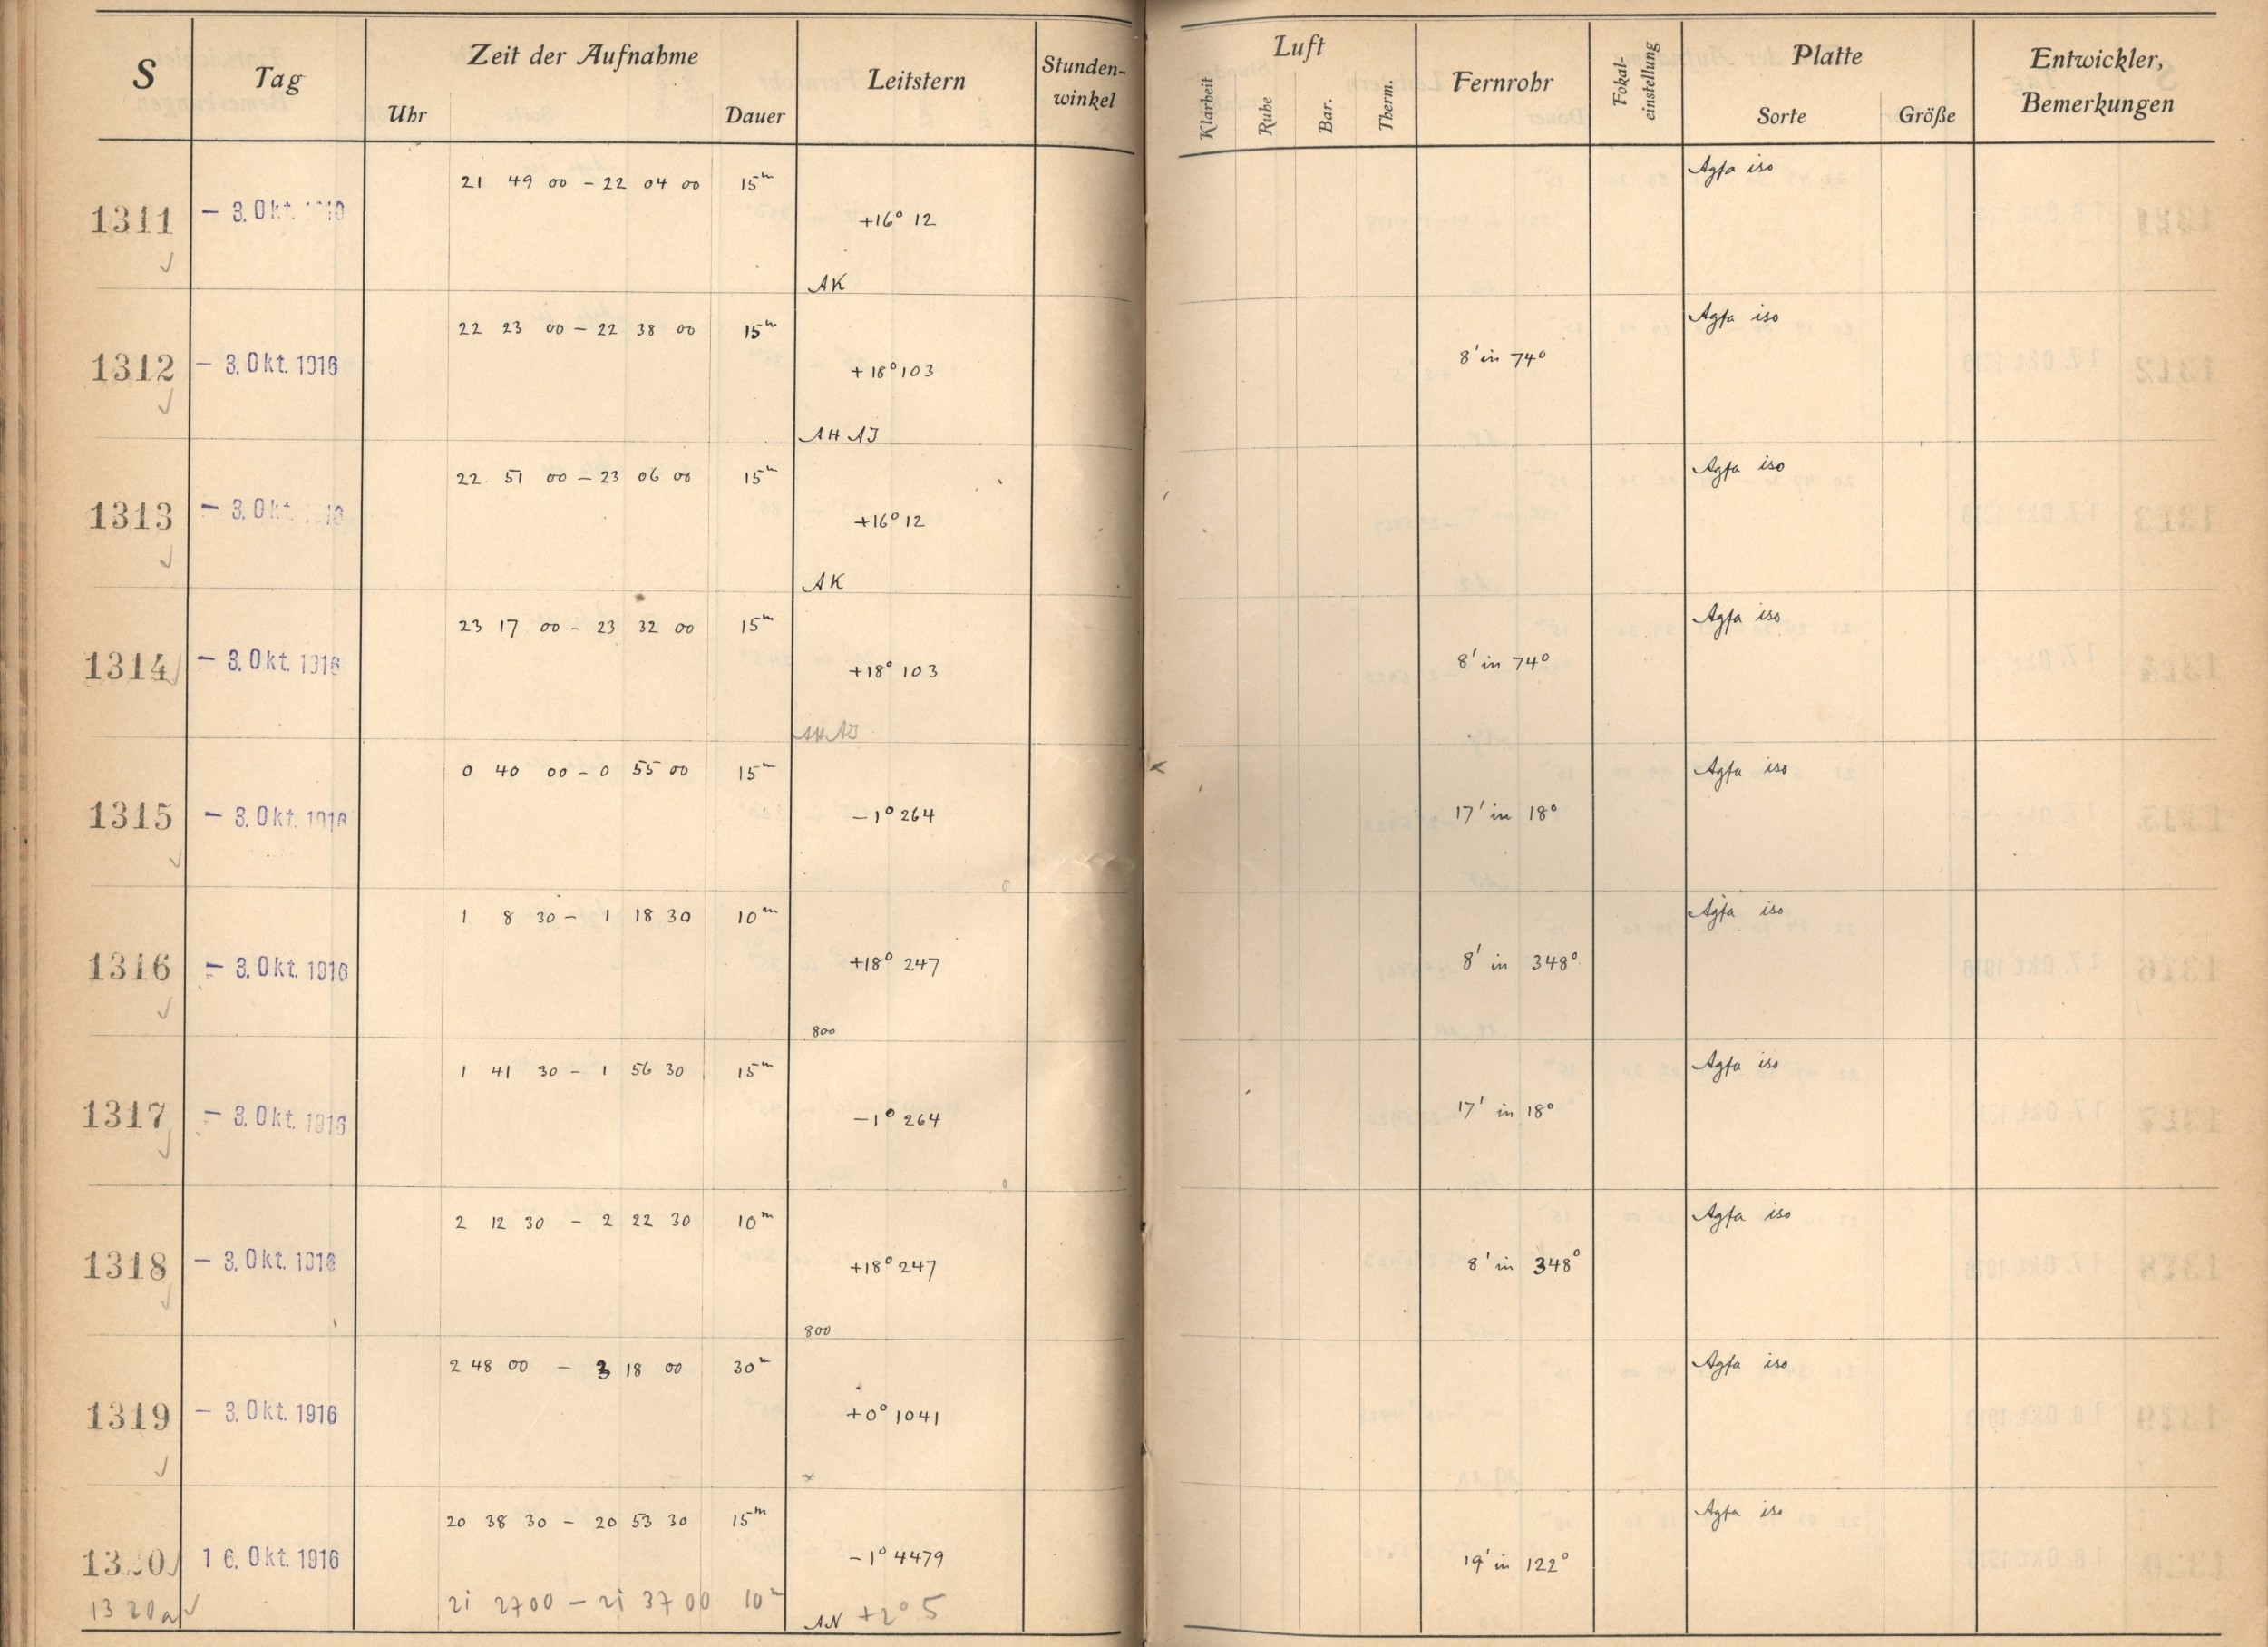 S Tag Zeit der Aufnahme Leitstern Stunden-winkel Luft Fernrohr Fokal-einstellung Platte Entwickler, Bemerkungen
Uhr Dauer Klarheit Ruhe Bar. Therm. Sorte Größe
21 49 00 – 22 04 00 15m Agfa iso
1311 – 3. Okt. +16° 12
AK
22 23 00 – 22 38 00 15m Agfa iso
1312 – 3. Okt. 1916 +18° 103 8' in 74°
AH AJ
22 51 00 – 23 06 00 15m Agfa iso
1313 – 3. Okt. +16° 12
AK
23 17 00 – 23 32 00 15m Agfa iso
1314 – 3. Okt. 1916 +18° 103 8' in 74°
AH AJ
0 40 00 – 0 55 00 15m Agfa iso
1315 – 3. Okt. 1916 –1° 264 17' in 18°
1 8 30 – 1 18 30 10m Agfa iso
1316 – 3. Okt. 1916 +18° 247 8' in 348°
800
1 41 30 – 1 56 30 15m Agfa iso
1317 – 3. Okt. 1916 –1° 264 17' in 18°
2 12 30 – 2 22 30 10m Agfa iso
1318 – 3. Okt. 1916 +18° 247 8' in 348°
800
2 48 00 – 3 18 00 30m Agfa iso
1319 – 3. Okt. 1916 +0° 1041
20 38 30 – 20 53 30 15m Agfa iso
1320 16. Okt. 1916 –1° 4479 19' in 122°
1320a 21 27 00 – 21 37 00 10m AN +2° 5